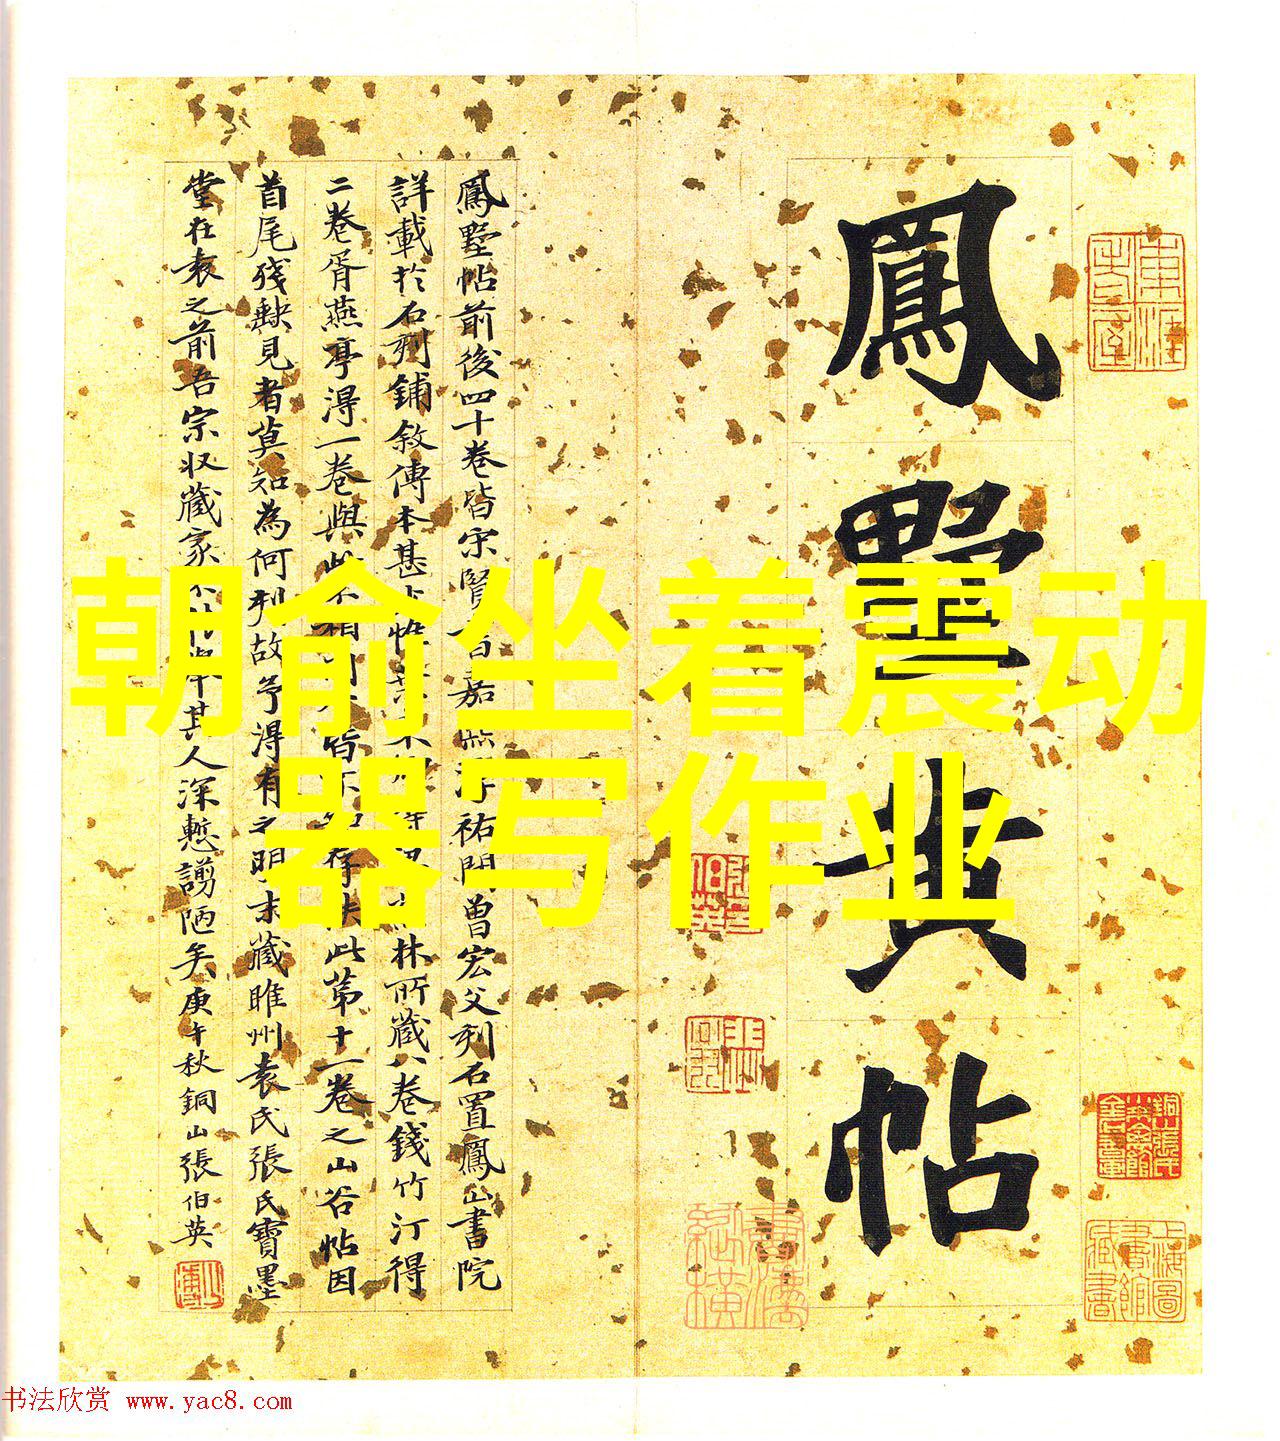 鳳墅黃帖
鳳墅帖前後四十卷皆宋賢書嘉熙淳祐間曾宏父刻石置鳳山書院
詳載於石刻鋪敘傳本甚 林所藏八卷錢竹汀得
二卷胥燕亭得一卷與此 皆不 存佚此第十一卷之山谷帖因
首尾殘缺見者莫知為何刻故予得有之明末藏睢州袁氏張氏寶墨
堂在袁之前吾宗收藏家 其人深慙謭陋矣庚午秋銅山張伯英
朝俞坐着震动
器写作业
书法欣赏 www.yac8.com